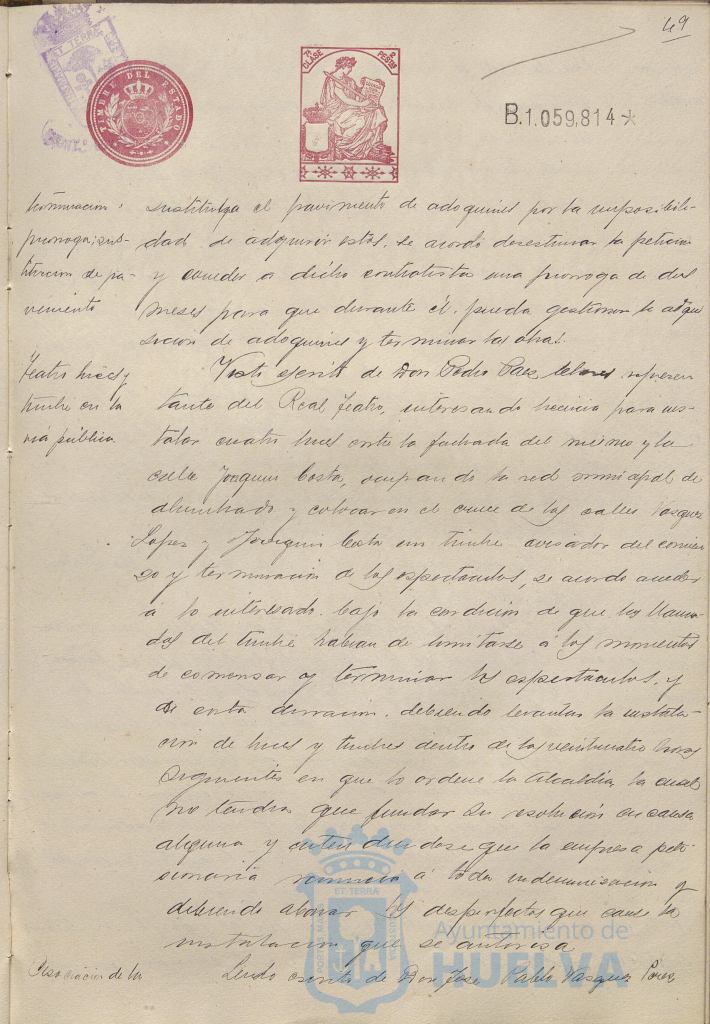 49
TIMBRE DEL ESTADO
7ª CLASE 2 PESTAS
B.1.059,814 *
terminacion:
prorroga: sus-
titucion de pa-
vimento
sustituya el pavimento de adoquines por la imposibili-
dad de adquirir estos, se acordó desestimar la peticion
y conceder a dicho contratista una prorroga de dos
meses para que durante él pueda gestionar la adqui
sicion de adoquines y terminar las obras.
Teatro luces y
timbre en la
via pública
Visto escrito de Don Pedro Paez represen
tante del Real Teatro, interesando licencia para ins-
talar cuatro luces entre la fachada del mismo y la
calle Joaquin Costa, ocupando la red municipal de
alumbrado y colocar en el cruce de las calles Vasquez
Lopez y Joaquin Costa un timbre avisador del comien
zo y terminacion de los espectaculos, se acordo acceder
a lo interesado bajo la condicion de que las llama-
das del timbre habian de limitarse á los momentos
de comenzar y terminar los espectaculos, y
de corta duracion, debiendo levantar la instala-
cion de luces y timbres dentro de las veinticuatro horas
siguientes en que lo ordene la Alcaldia la cual
no tendra que fundar su resolución en causa
alguna y entendiendose que la empresa peti-
cionaria renuncia á toda indemnizacion y
debiendo abonar los desperfectos que cause la
instalacion que se autoriza
Asociacion de la
Leido escrito de Don José Pablo Vasquez Perez
Ayuntamiento de
HUELVA